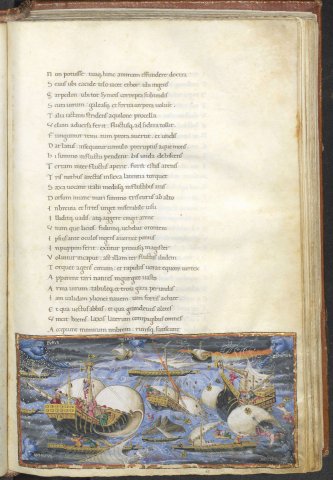 Non potuisse tuaq; hanc animam effundere dextra
Sæuus ubi eacide telo iacet hector ubi ingens
Sarpedon ubi tot symois correpta sub undis
Scuta uirum galeasq; et fortia corpora uoluit
Talia iactanti stridens aquilone procella
Velum aduersa ferit fluctusq; ad sidera tollit
Franguntur remi tum prora auertit et undis
Dat latus insequitur cumulo preruptus aque mons
Hi summo in fluctu pendent his unda dehiscens
Terram inter fluctus aperit furit estus arenis
Tris nothus abreptas in saxa latentia torquet
Saxa uocant itali mediisq; in fluctibus aras
Dorsum inmane mari summo tris eurus ab alto
In breuia et sirtes urget miserabile uisu
Illiditq; uadis atq; aggere cingit arene
Vnam que licios fidumq; uehebat orontem
Ipsius ante oculos ingens a uertice pontus
In puppim ferit excutitur pronusq; magister
Voluitur in caput ast illam ter fluctus ibidem
Torquet agens circum et rapidus uorat equore uortex
Apparent rari nantes in gurgite uasto
Arma uirum tabuleq; et troia gaza per undas
Iam ualidam ylionei nauem iam fortis achate
Et qua uectus abas et qua grandeuus aletes
Vicit hiems laxis laterum compagibus omnes
Accipiunt inimicum imbrem rimisq; fatiscunt